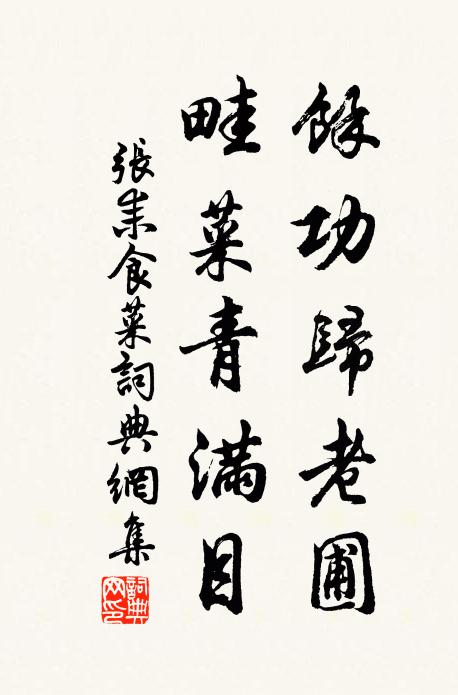 餘功歸老圃
畦菜青滿目
張耒食菜詞典網集
詞典網印